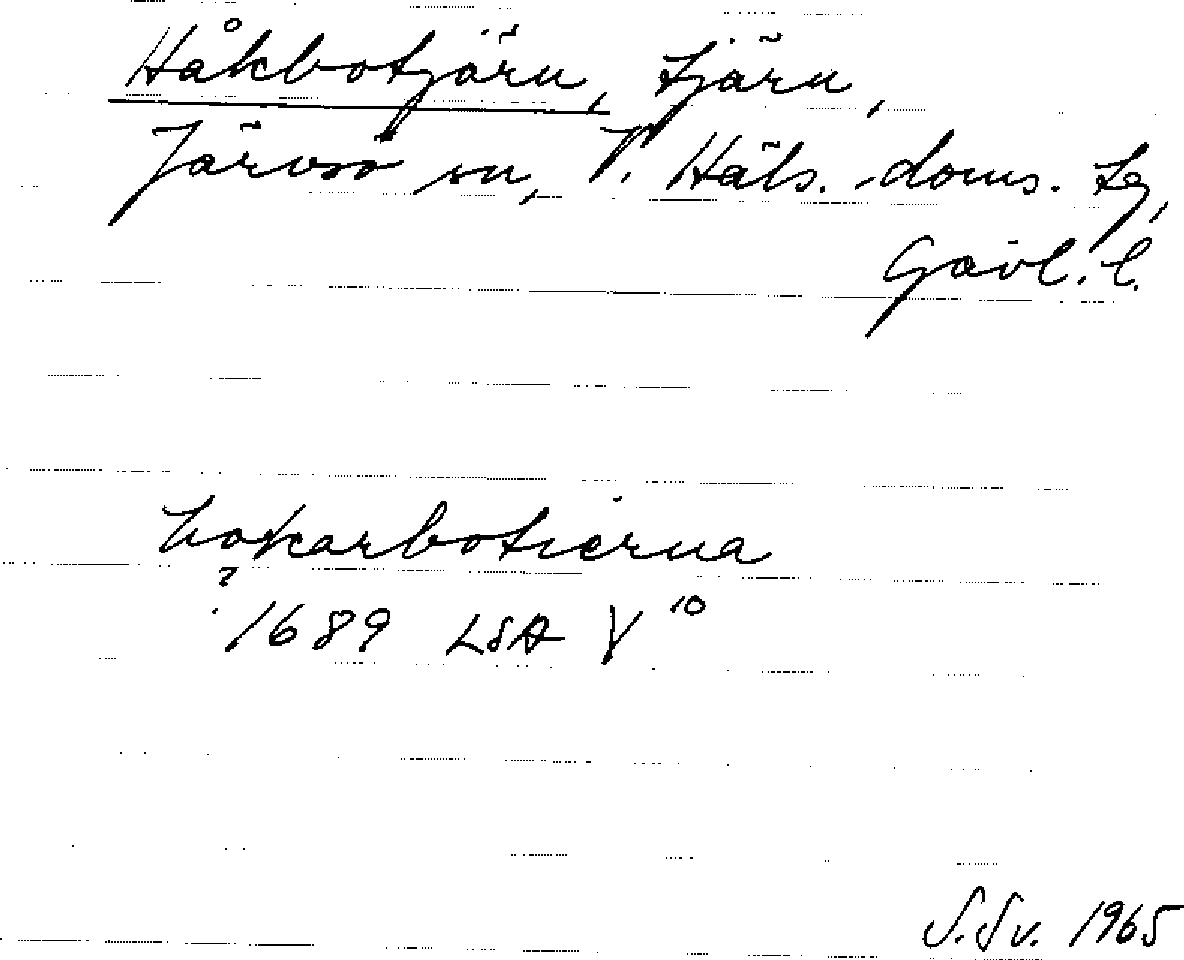 Håkbotjärn, tjärn,
Järvsö sn, V. Häls. doms. tg,
Gävl. l.
hokarbotierna
?
1689 LSA V 10
S.Sv. 1965